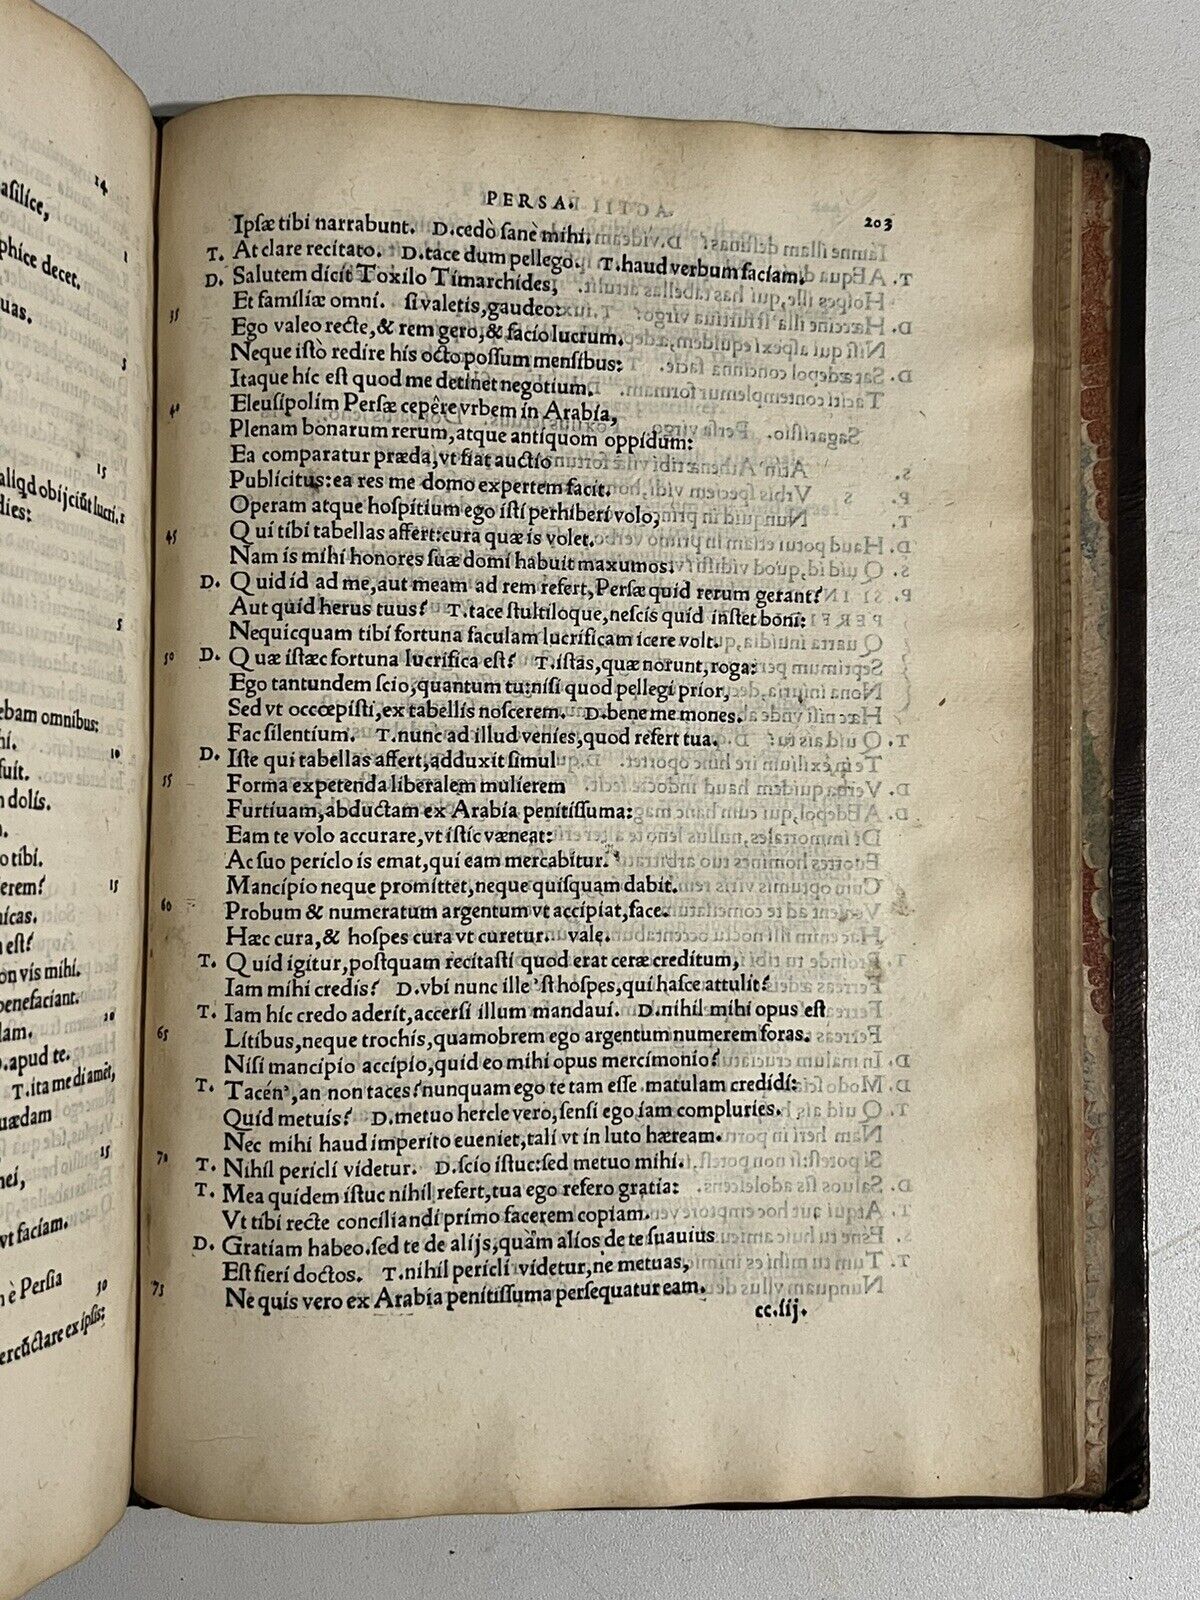 14
asilice,
1
phice decet.
uas.
5
15
aliqd obijciūt lucri.
dies:
5
ebam omnibus:
10
fuit.
n dolis.
o tibi.
15
erem?
icas.
est?
on vis mihi.
benefaciant.
20
dam.
D.apud te.
T.ita me di amēt,
uædam
15
nei,
vt faciam.
è Persia
30
ercūctare ex ipsis:
PERSA.
203
Ipsæ tibi narrabunt. D.cedò sanè mihi.
T. At clare recitato. D.tace dum pellego. T.haud verbum faciam.
D. Salutem dicit Toxilo Timarchides,
Et familiæ omni. si valetis, gaudeo:
35 Ego valeo recte,& rem gero,& facio lucrum.
Neque istò redire his octo possum mensibus:
Itaque hic est quod me detinet negotium.
Eleusipolim Persæ cepêre vrbem in Arabia,
40 Plenam bonarum rerum,atque antiquom oppidum:
Ea comparatur præda,vt fiat auctio
Publicitus:ea res me domo expertem facit.
Operam atque hospitium ego isti perhiberi volo,
Qui tibi tabellas affert:cura quæ is volet.
45 Nam is mihi honores suæ domi habuit maxumos.
D. Quid id ad me,aut meam ad rem refert,Persæ quid rerum gerant?
Aut quid herus tuus? T.tace stultiloque,nescis quid instet boni:
Nequicquam tibi fortuna faculam lucrificam icere volt.
50 D. Quæ istæc fortuna lucrifica est? T.istas,quæ norunt,roga:
Ego tantundem scio,quantum tu:nisi quod pellegi prior,
Sed vt occœpisti,ex tabellis noscerem. D.bene me mones.
Fac silentium. T.nunc ad illud venies,quod refert tua.
D. Iste qui tabellas affert,adduxit simul
55 Forma expetenda liberalem mulierem
Furtiuam,abductam ex Arabia penitissuma:
Eam te volo accurare,vt istic væneat:
Ac suo periclo is emat,qui eam mercabitur.
Mancipio neque promittet,neque quisquam dabit.
60 Probum & numeratum argentum vt accipiat,face.
Hæc cura,& hospes cura vt curetur. vale.
T. Quid igitur,postquam recitasti quod erat ceræ creditum,
Iam mihi credis? D.vbi nunc ille 'st hospes,qui hasce attulit?
T. Iam hic credo aderit,accersi illum mandaui. D.nihil mihi opus est
65 Litibus,neque trochis,quamobrem ego argentum numerem foras.
Nisi mancipio accipio,quid eo mihi opus mercimonio?
T. Tacén',an non taces?nunquam ego te tam esse matulam credidi:
Quid metuis? D.metuo hercle vero,sensi ego iam compluries.
Nec mihi haud imperito eueniet,tali vt in luto hæream.
70 T. Nihil pericli videtur. D.scio istuc:sed metuo mihi.
T. Mea quidem istuc nihil refert,tua ego refero gratia:
Vt tibi recte conciliandi primo facerem copiam.
D. Gratiam habeo.sed te de alijs,quàm alios de te suauius
Est fieri doctos. T.nihil pericli videtur,ne metuas,
75 Ne quis vero ex Arabia penitissuma persequatur eam.
cc.iij.